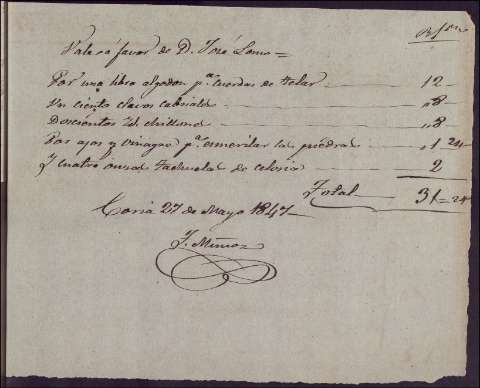 Rs. vn.
Vale a favor de D. José Lomo =
Por una libra algodon p.ª cuerdas de telar 12
Un ciento clavos cabriales 8
Doscientos id. chillones 8
Por ajos y vinagre p.ª esmerilar las piedras 1 24
Y cuatro onzas tachuelas de celosia 2
Total 31 = 24
Coria 27 de Mayo 1847
J. Muñoz